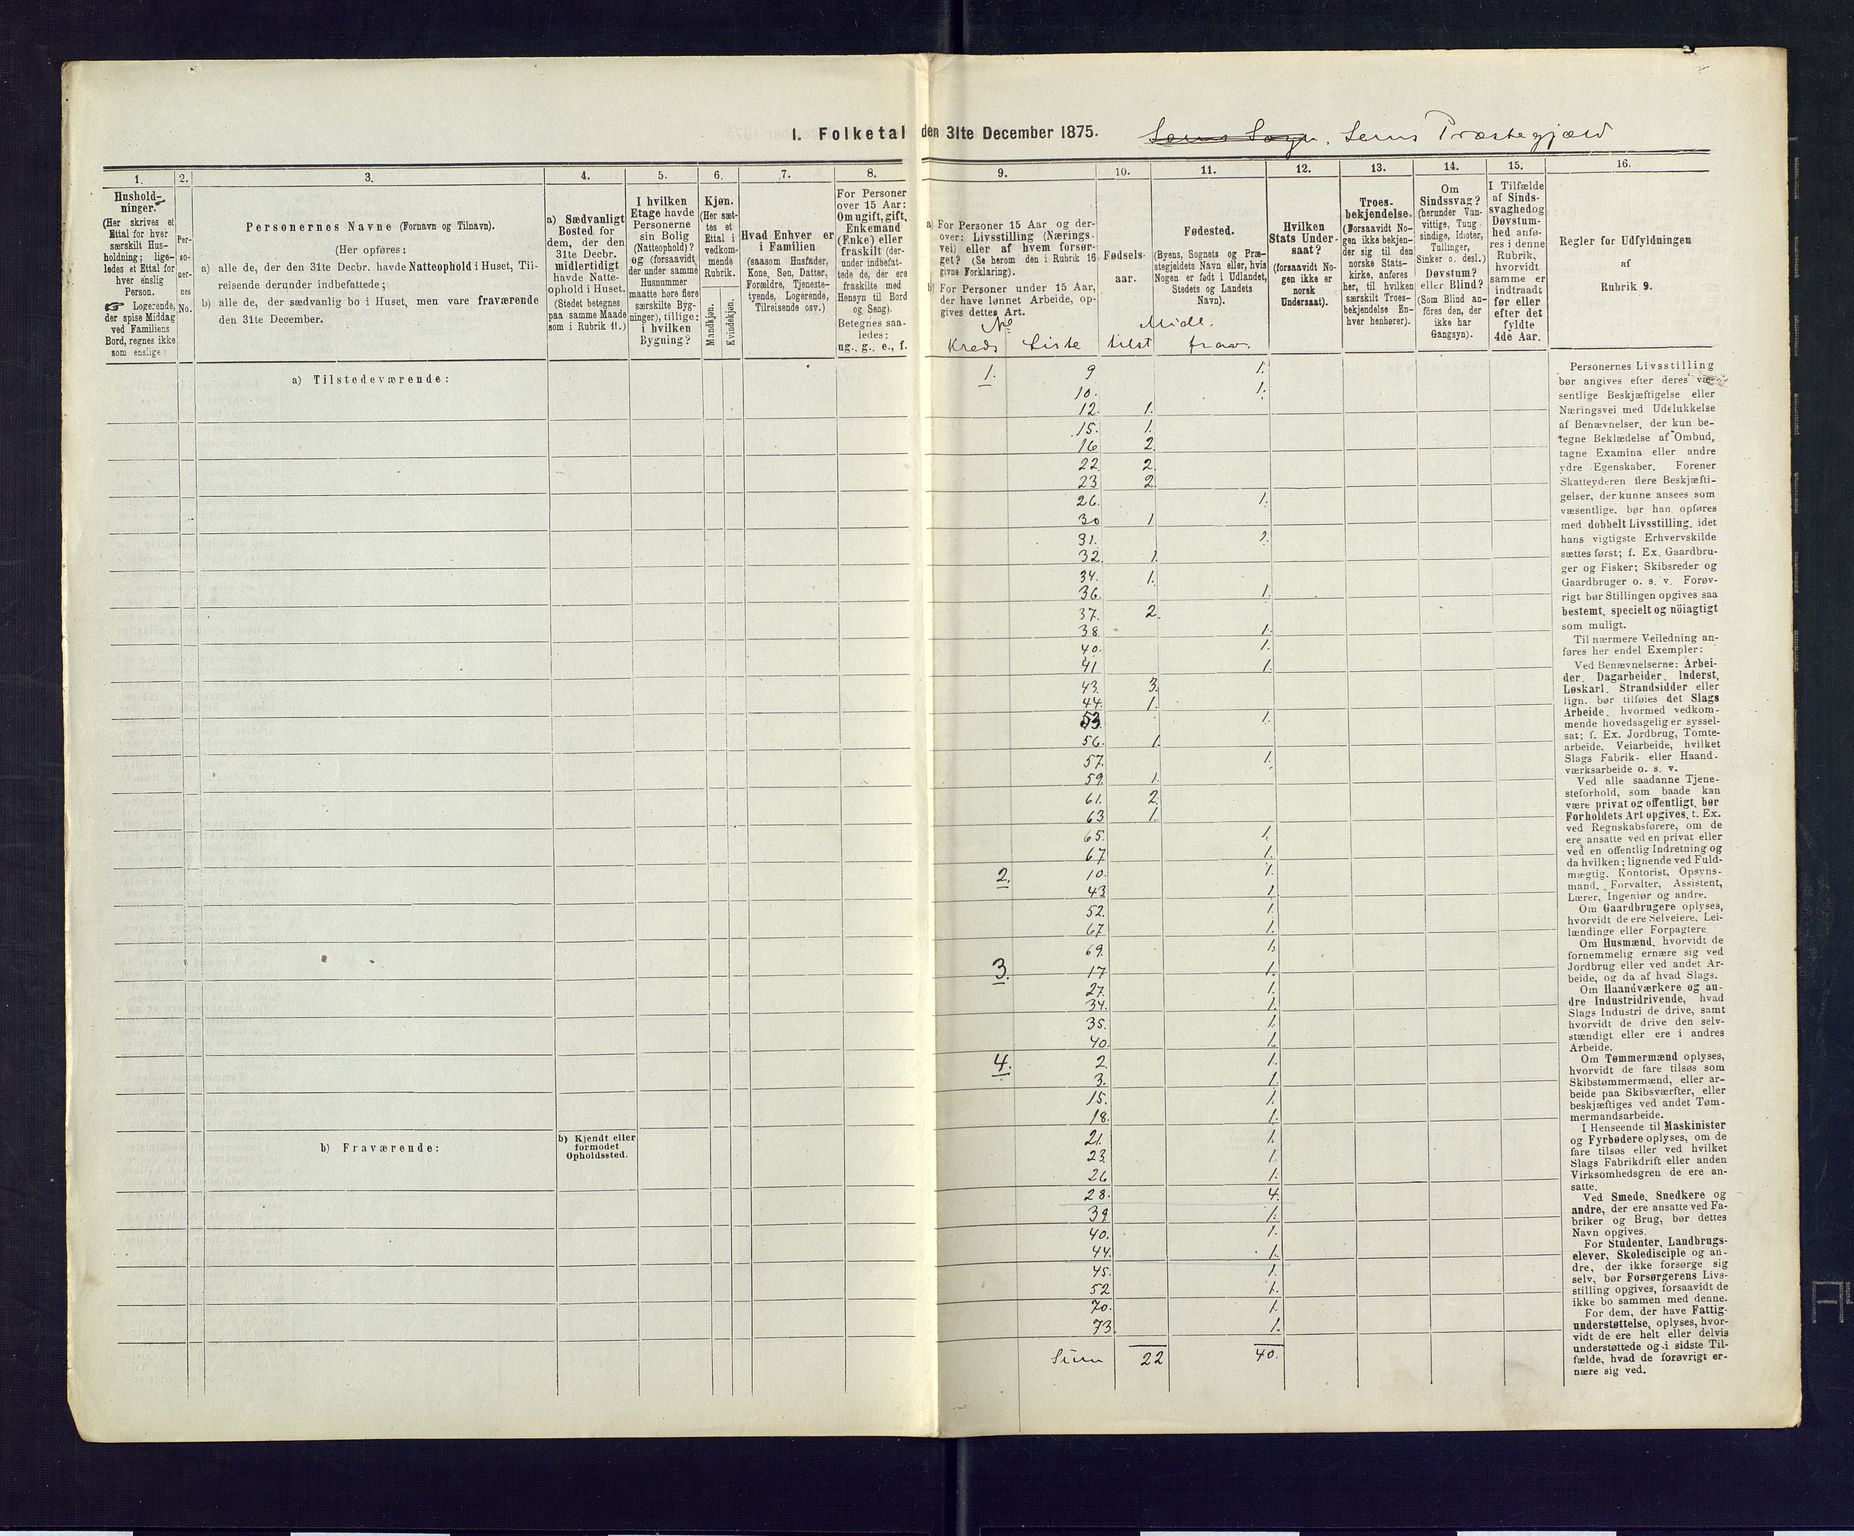 I. Folketal den 31te December 1875. Sems Sogn. Sems Præstegjæld
1. 2. 3. 4. 5. 6. 7. 8. 9. 10. 11. 12. 13. 14. 15. 16.
Hushold-
ninger.
(Her skrives et
Ettal for hver
særskilt Hus-
holdning; lige-
ledes et Ettal for
hver enslig
Person.
☞ Logerende,
der spise Middag
ved Familiens
Bord, regnes ikke
som enslige)
Per-
so-
ner-
nes
No.
Personernes Navne (Fornavn og Tilnavn).
(Her opføres:
a) alle de, der den 31te Decbr. havde Natteophold i Huset, Til-
reisende derunder indbefattede;
b) alle de, der sædvanlig bo i Huset, men vare fraværende
den 31te December.
a) Sædvanligt
Bosted for
dem, der den
31te Decbr.
midlertidigt
havde Natte-
ophold i Huset.
(Stedet betegnes
paa samme Maade
som i Rubrik 11.)
I hvilken
Etage havde
Personerne
sin Bolig
(Natteophold)?
og (forsaavidt
der under samme
Husnummer
maatte høre flere
særskilte Byg-
ninger), tillige:
i hvilken
Bygning?
Kjøn.
(Her sæt-
tes et
Ettal i
vedkom-
mende
Rubrik.
Mandkjøn.
Kvindekjøn.
Hvad Enhver er
i Familien
(saasom Husfader,
Kone, Søn, Datter,
Forældre, Tjeneste-
tyende, Logerende,
Tilreisende osv.)
For Personer
over 15 Aar:
Om ugift, gift,
Enkemand
(Enke) eller
fraskilt (der-
under indbefat-
tede de, der ere
fraskilte med
Hensyn til Bord
og Seng).
Betegnes saa-
ledes:
ug., g., e., f.
a) For Personer 15 Aar og der-
over: Livsstilling (Nærings-
vei) eller af hvem forsør-
get? (Se herom den i Rubrik 16
givne Forklaring).
b) For Personer under 15 Aar,
der have lønnet Arbeide, op-
gives dettes Art.
No
Kreds Liste
Fødsels-
aar.
Midl.
tilst frav.
Fødested.
(Byens, Sognets og Præ-
stegjeldets Navn eller, hvis
Nogen er født i Udlandet,
Stedets og Landets
Navn).
Hvilken
Stats Under-
saat?
(forsaavidt No-
gen ikke er
norsk
Undersaat).
Troes-
bekjendelse.
(Forsaavidt No-
gen ikke bekjen-
der sig til den
norske Stats-
kirke, anføres
her, til hvilken
særskilt Troes-
bekjendelse En-
hver henhører).
Om
Sindssvag?
(herunder Van-
vittige, Tung-
sindige, Idioter,
Tullinger,
Sinker o. desl.)
Døvstum?
eller Blind?
(Som Blind an-
føres den, der
ikke har
Gangsyn).
I Tilfælde
af Sinds-
svaghed og
Døvstum-
hed anfø-
res i denne
Rubrik,
hvorvidt
samme er
indtraadt
før eller
efter det
fyldte
4de Aar.
Regler for Udfyldningen
af
Rubrik 9.
a) Tilstedeværende:
1. 9 1.
10. 1.
12. 1.
15. 1.
16 2.
22 2.
23 2.
26. 1.
30 1
31. 2.
32. 1.
34. 1.
36. 1.
37. 2.
38 1.
40. 1.
41 1.
43. 3.
44. 1.
53. 1.
56. 1.
57. 1.
59. 1.
61. 2.
63 1.
65. 1.
67 1.
2. 10. 1.
43 1.
52. 1.
67 1.
69. 1.
3. 17 1.
27. 1.
34. 1.
35. 1.
40. 1.
4. 2. 1.
3. 1.
15. 1.
18. 1.
b) Fraværende:
b) Kjendt eller
formodet
Opholdssted.
21. 1.
23. 1.
26 1.
28. 4.
39 1.
40. 1.
44. 1.
45. 1.
52 1.
70. 1.
73. 1.
Sum 22 40.
Personernes Livsstilling
bør angives efter deres væ-
sentlige Beskjæftigelse eller
Næringsvei med Udelukkelse
af Benævnelser, der kun be-
tegne Beklædelse af Ombud,
tagne Examina eller andre
ydre Egenskaber. Forener
Skatteyderen flere Beskjæfti-
gelser, der kunne ansees som
væsentlige, bør han opføres
med dobbelt Livsstilling, idet
hans vigtigste Erhvervskilde
sættes først; f. Ex. Gaardbru-
ger og Fisker; Skibsreder og
Gaardbruger o. s. v. Forøv-
rigt bør Stillingen opgives saa
bestemt, specielt og nöiagtigt
som muligt.
Til nærmere Veiledning an-
føres her endel Exempler:
Ved Benævnelserne: Arbei-
der, Dagarbeider, Inderst,
Løskarl, Strandsidder eller
lign. bør tilføies det Slags
Arbeide, hvormed vedkom-
mende hovedsagelig er syssel-
sat; f. Ex. Jordbrug, Tomte-
arbeide, Veiarbeide, hvilket
Slags Fabrik- eller Haand-
værksarbeide o. s. v.
Ved alle saadanne Tjene-
steforhold, som baade kan
være privat og offentligt, bør
Forholdets Art opgives, t. Ex.
ved Regnskabsførere, om de
ere ansatte ved en privat eller
ved en offentlig Indretning og
da hvilken; lignende ved Fuld-
mægtig, Kontorist, Opsyns-
mand, Forvalter, Assistent,
Lærer, Ingeniør og andre.
Om Gaardbrugere oplyses,
hvorvidt de ere Selveiere, Lei-
lændinge eller Forpagtere.
Om Husmænd, hvorvidt de
fornemmelig ernære sig ved
Jordbrug eller ved andet Ar-
beide, og da af hvad Slags.
Om Haandværkere og an-
dre Industridrivende, hvad
Slags Industri de drive, samt
hvorvidt de drive den selv-
stændigt eller ere i andres
Arbeide.
Om Tømmermænd oplyses,
hvorvidt de fare tilsøs som
Skibstømmermænd, eller ar-
beide paa Skibsværfter, eller
beskjæftiges ved andet Tøm-
mermandsarbeide.
I Henseende til Maskinister
og Fyrbødere oplyses, om de
fare tilsøs eller ved hvilket
Slags Fabrikdrift eller anden
Virksomhedsgren de ere an-
satte.
Ved Smede, Snedkere og
andre, der ere ansatte ved Fa-
briker og Brug, bør dettes
Navn opgives.
For Studenter, Landbrugs-
elever, Skoledisciple og an-
dre, der ikke forsørge sig
selv, bør Forsørgerens Livs-
stilling opgives, forsaavidt de
ikke bo sammen med denne.
For dem, der have Fattig-
understøttelse, oplyses, hvor-
vidt de ere helt eller delvis
understøttede og i sidste Til-
fælde, hvad de forøvrigt er-
nære sig ved.